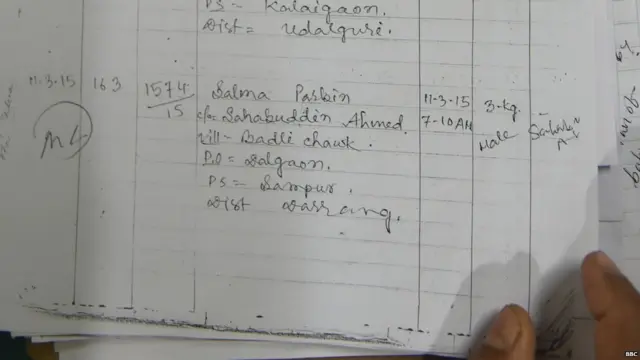 PS - Kalaigaon.
Dist = Udalguri.
11-3-15 163 1574/15 Salma Parbin 11-3-15 3-kg.
c/o - Sahabuddin Ahmed. 7-10AM Male
vill - Badli chawk.
P.O = Dalgaon.
PS = Sampur.
Dist Darrang.
BBC